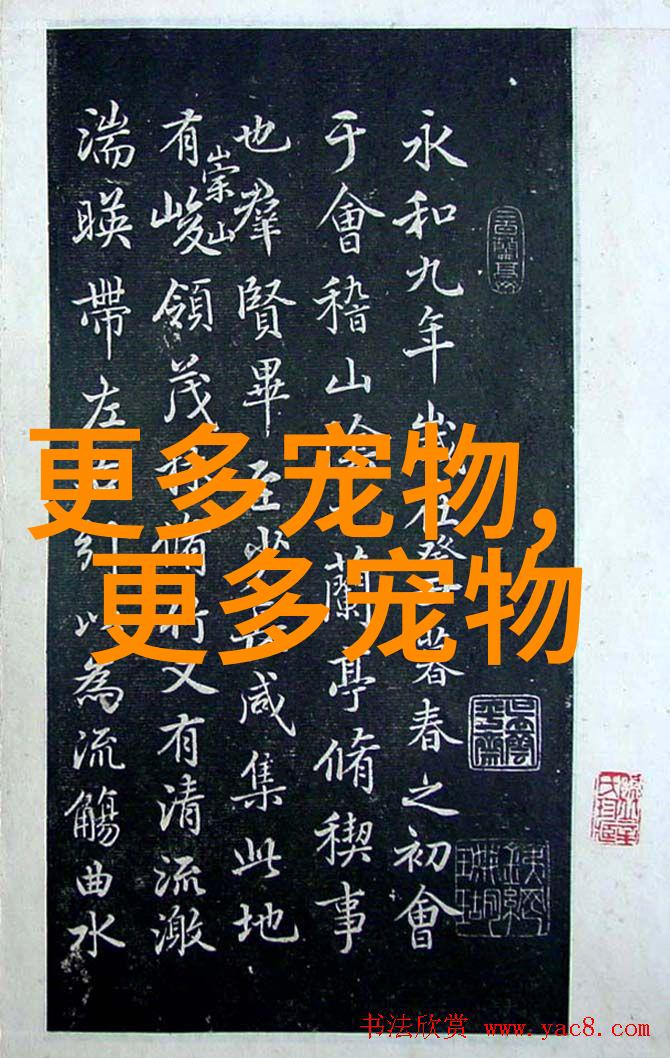 永和九年歲在癸暮春之初會
于會稽山陰蘭亭脩稧事
也羣賢畢至少長咸集此地
有崇山峻領茂林脩竹又有清流激
湍暎帶左右引以為流觴曲水
更多宠物,
更多宠物
书法欣赏 www.yac8.com